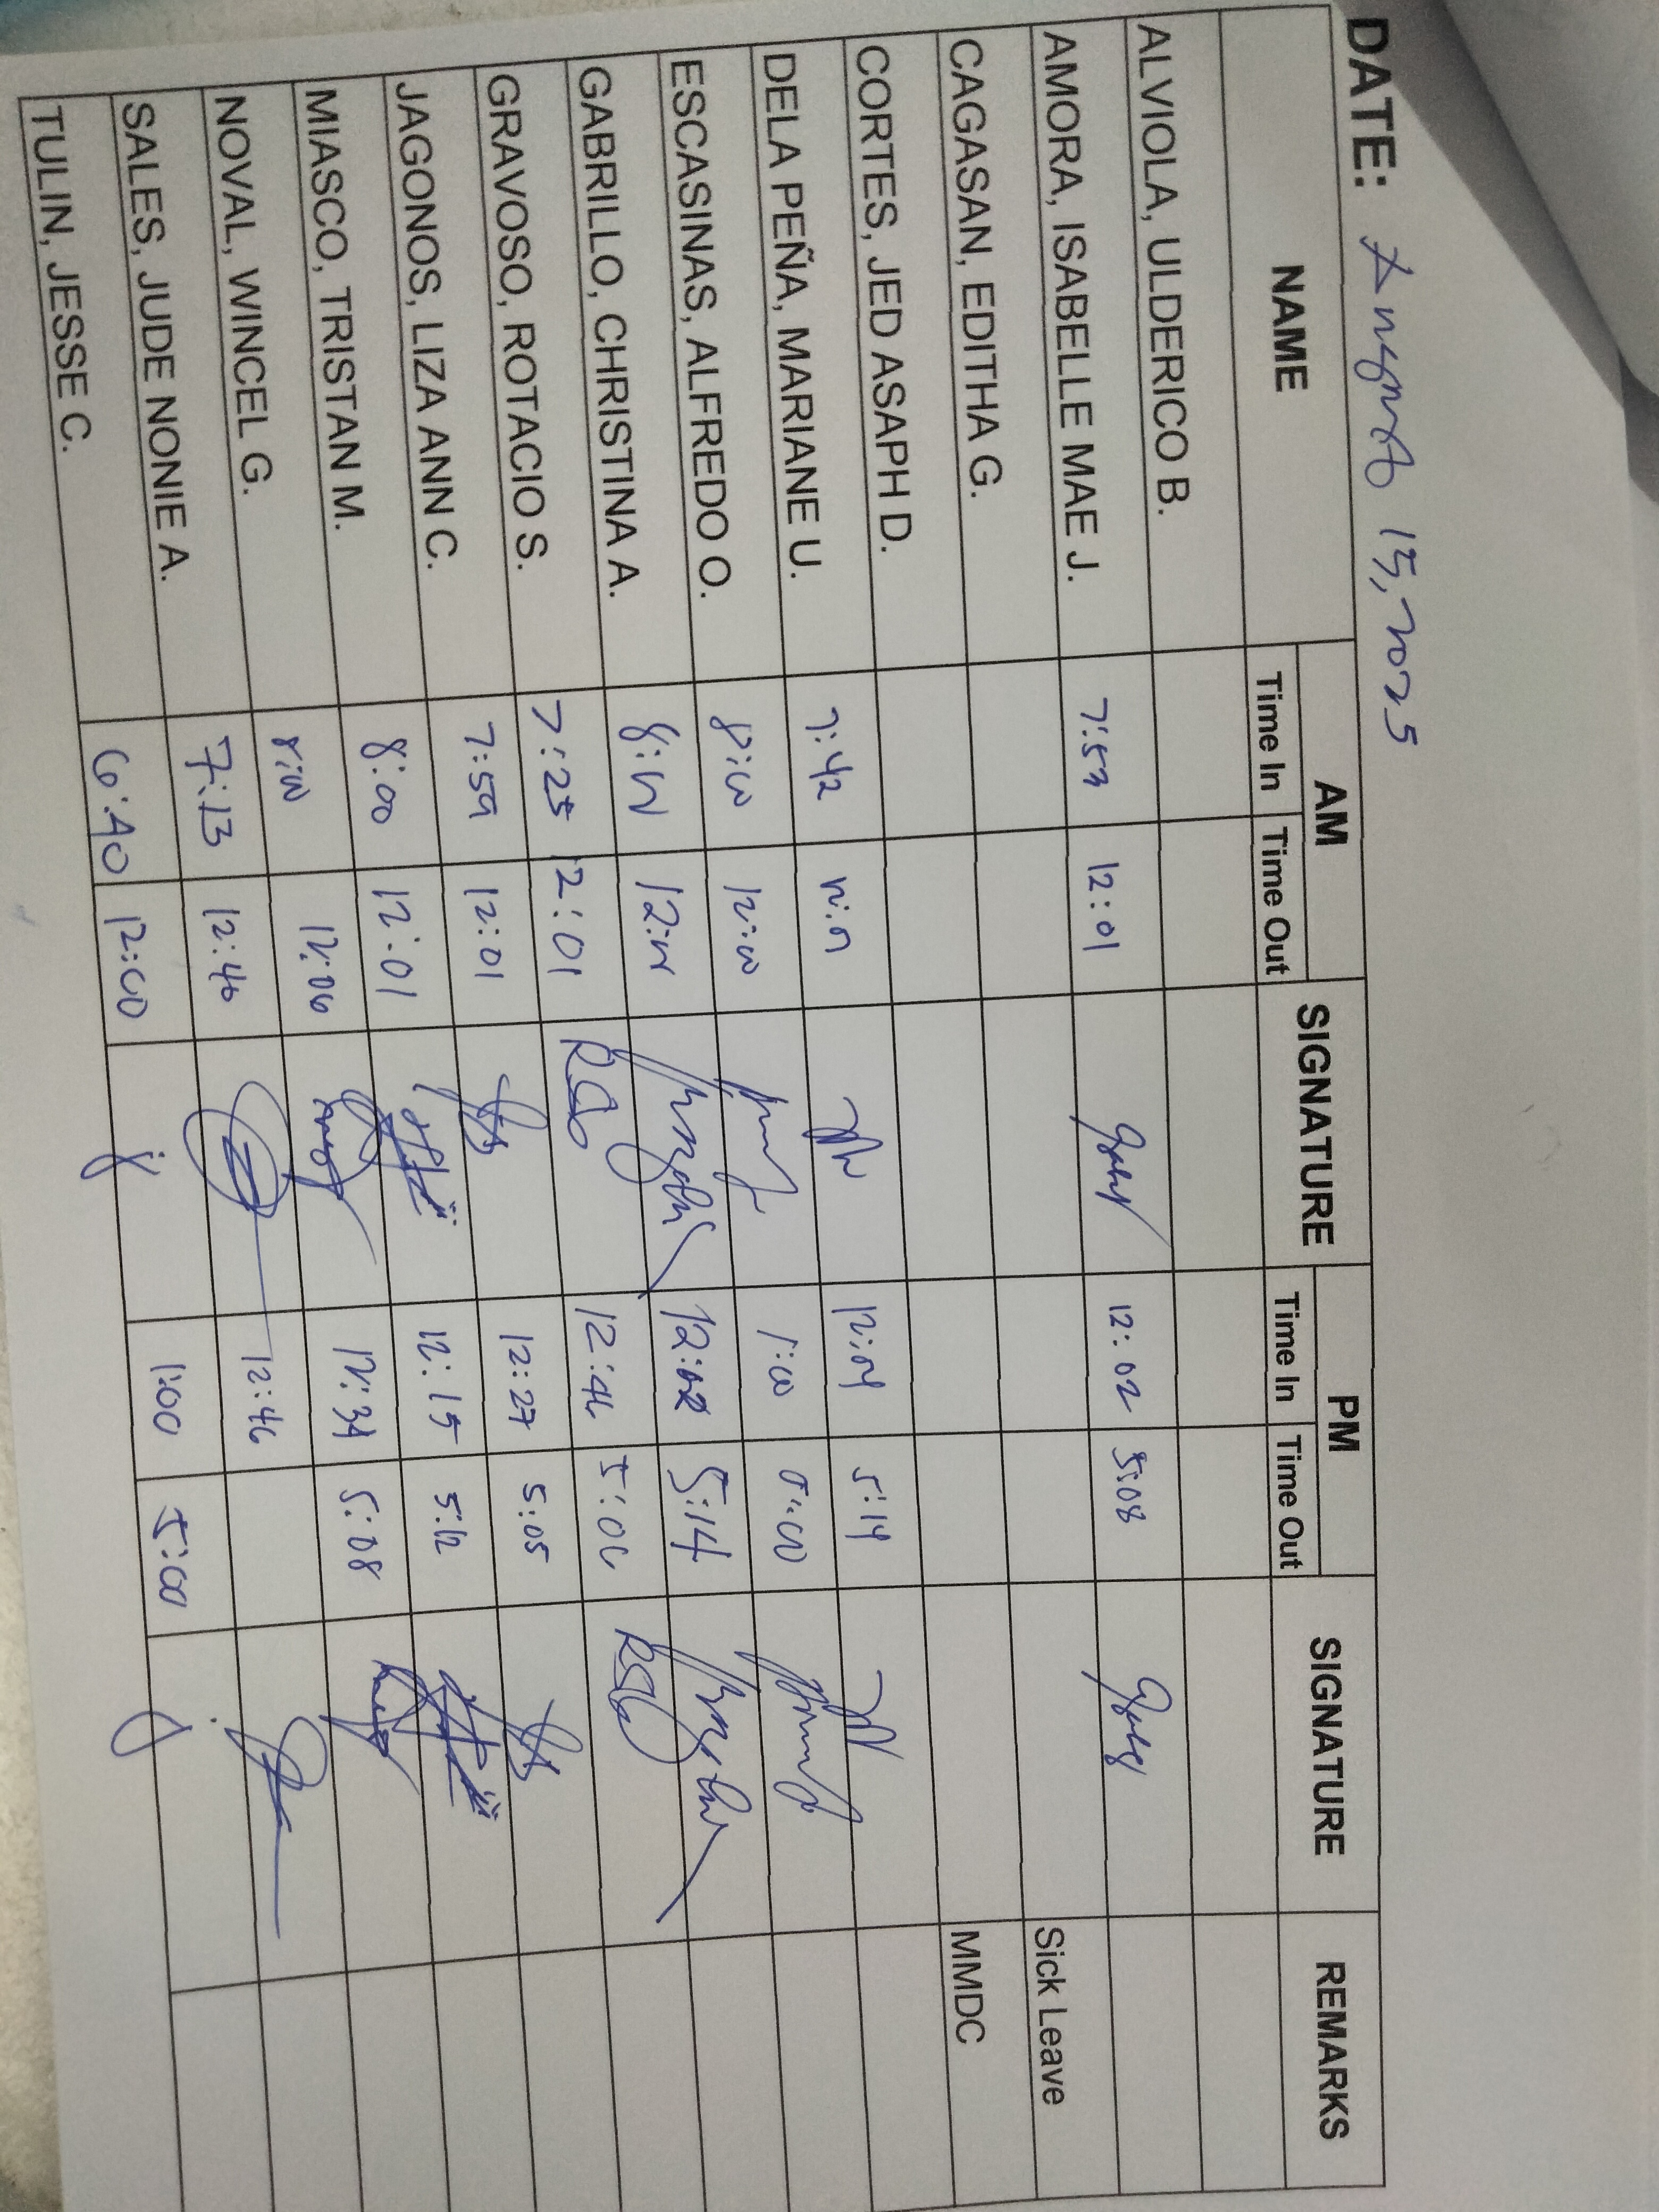 DATE: August 15, 2025
NAME AM SIGNATURE PM SIGNATURE REMARKS
Time In Time Out Time In Time Out
ALVIOLA, ULDERICO B.
AMORA, ISABELLE MAE J. 7:53 12:01 12:02 5:08
CAGASAN, EDITHA G. Sick Leave
CORTES, JED ASAPH D. MMDC
DELA PEÑA, MARIANE U. 7:42 5:19
ESCASINAS, ALFREDO O. 8:00 12:00 1:00 5:00
GABRILLO, CHRISTINA A. 8:00 12:02 5:14
GRAVOSO, ROTACIO S. 7:25 12:01 RSG 12:46 5:06 RSG
JAGONOS, LIZA ANN C. 7:59 12:01 12:27 5:05
MIASCO, TRISTAN M. 8:00 12:01 12:15 5:12
NOVAL, WINCEL G. 8:00 12:06 12:34 5:08
SALES, JUDE NONIE A. 7:13 12:46 12:46
TULIN, JESSE C. 6:40 12:00 1:00 5:00